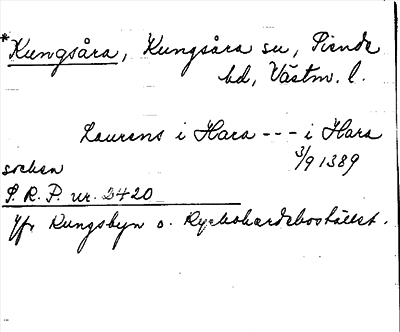 *Kungsåra, Kungsåra sn, Siende
hd, Västm. l.
Laurens i Hara --- i Hara
socken
3/9 1389
S. R. P. nr. 2420
Jfr Kungsbyn o. Ryckohardsbostället.